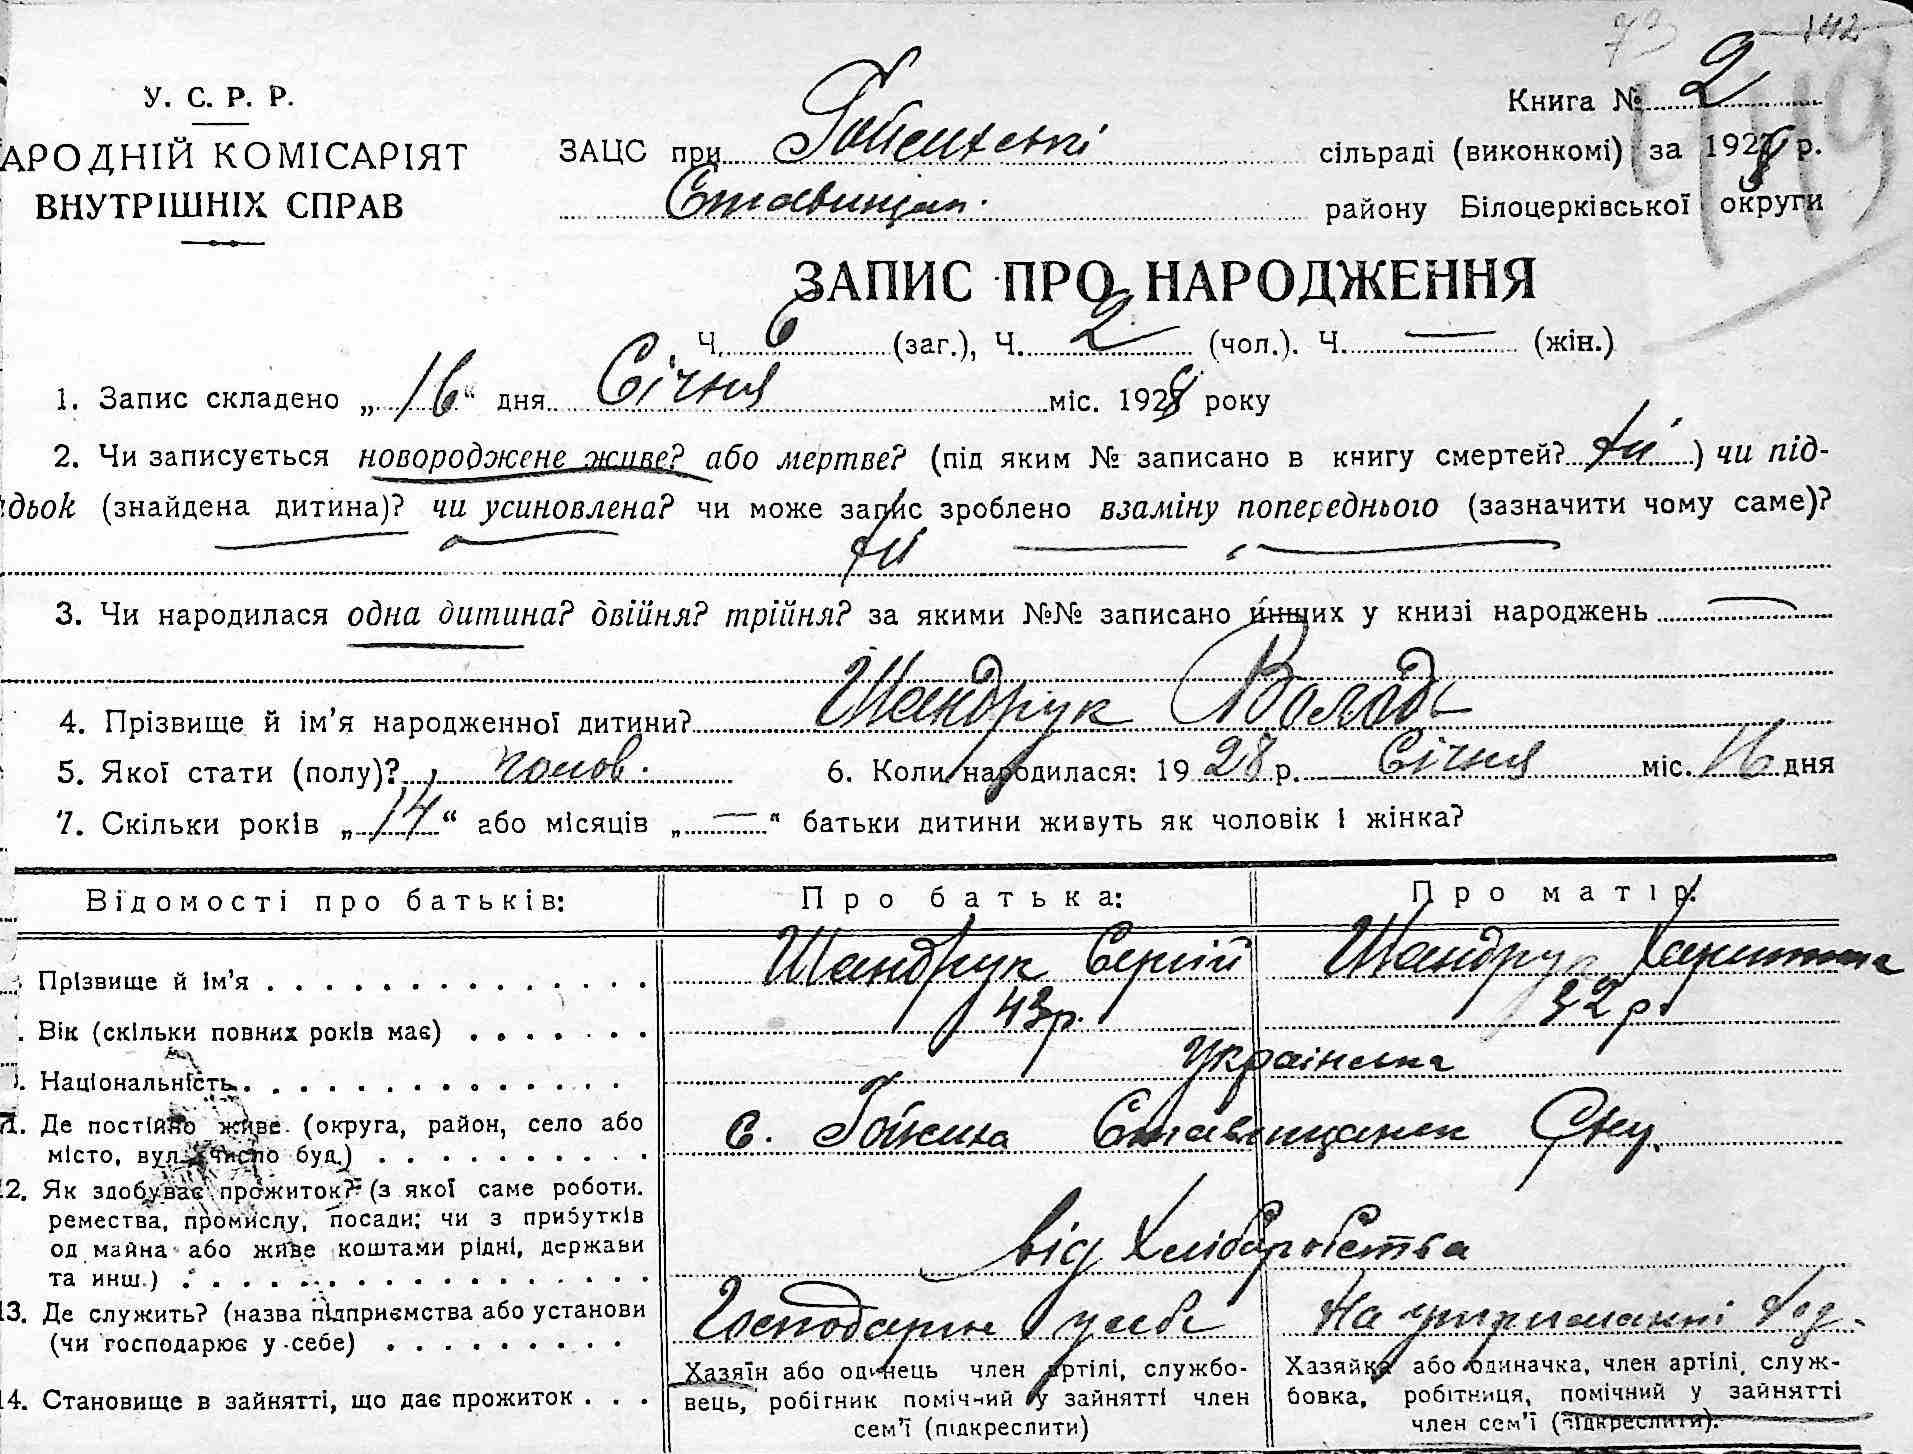 73 142
У. С. Р. Р.
Книга № 2
АРОДНІЙ КОМІСАРІЯТ
ЗАЦС при Гойсенські сільраді (виконкомі) за 1928 р.
ВНУТРІШНІХ СПРАВ
Ставищан. району Білоцерківської округи
ЗАПИС ПРО НАРОДЖЕННЯ
Ч. 6 (заг.), Ч. 2 (чол.). Ч. — (жін.)
1. Запис складено „16“ дня Січня міс. 1928 року
2. Чи записується новороджене живе? або мертве? (під яким № записано в книгу смертей? ні) чи під-
дьок (знайдена дитина)? чи усиновлена? чи може запис зроблено взаміну попереднього (зазначити чому саме)?
ні
3. Чи народилася одна дитина? двійня? трійня? за якими №№ записано инших у книзі народжень —
4. Прізвище й ім'я народженної дитини? Шандрук Волод
5. Якої стати (полу)? чолов. 6. Коли народилася: 1928 р. Січня міс. 16 дня
7. Скільки років „14“ або місяців „—“ батьки дитини живуть як чоловік і жінка?
Відомості про батьків: Про батька: Про матір:
Прізвище й ім'я Шандрук Сергій Шандрук Харитина
Вік (скільки повних років має) 43 р. 32 р.
Національність Українська
1. Де постійно живе (округа, район, село або с. Гойсина Ставищанськ Р-ну.
місто, вул. число буд.)
2. Як здобуває прожиток? (з якої саме роботи.
ремества, промислу, посади; чи з прибутків
од майна або живе коштами рідні, держави від Хліборобства
та инш.)
3. Де служить? (назва підприємства або установи Господарює у себе На утриманні
(чи господарює у себе)
4. Становище в зайнятті, що дає прожиток
Хазяїн або одинець член артілі, службо-
вець, робітник помічний у зайнятті член
сем'ї (підкреслити)
Хазяйка або одиначка, член артілі, служ-
бовка, робітниця, помічний у зайнятті
член сем'ї (підкреслити).